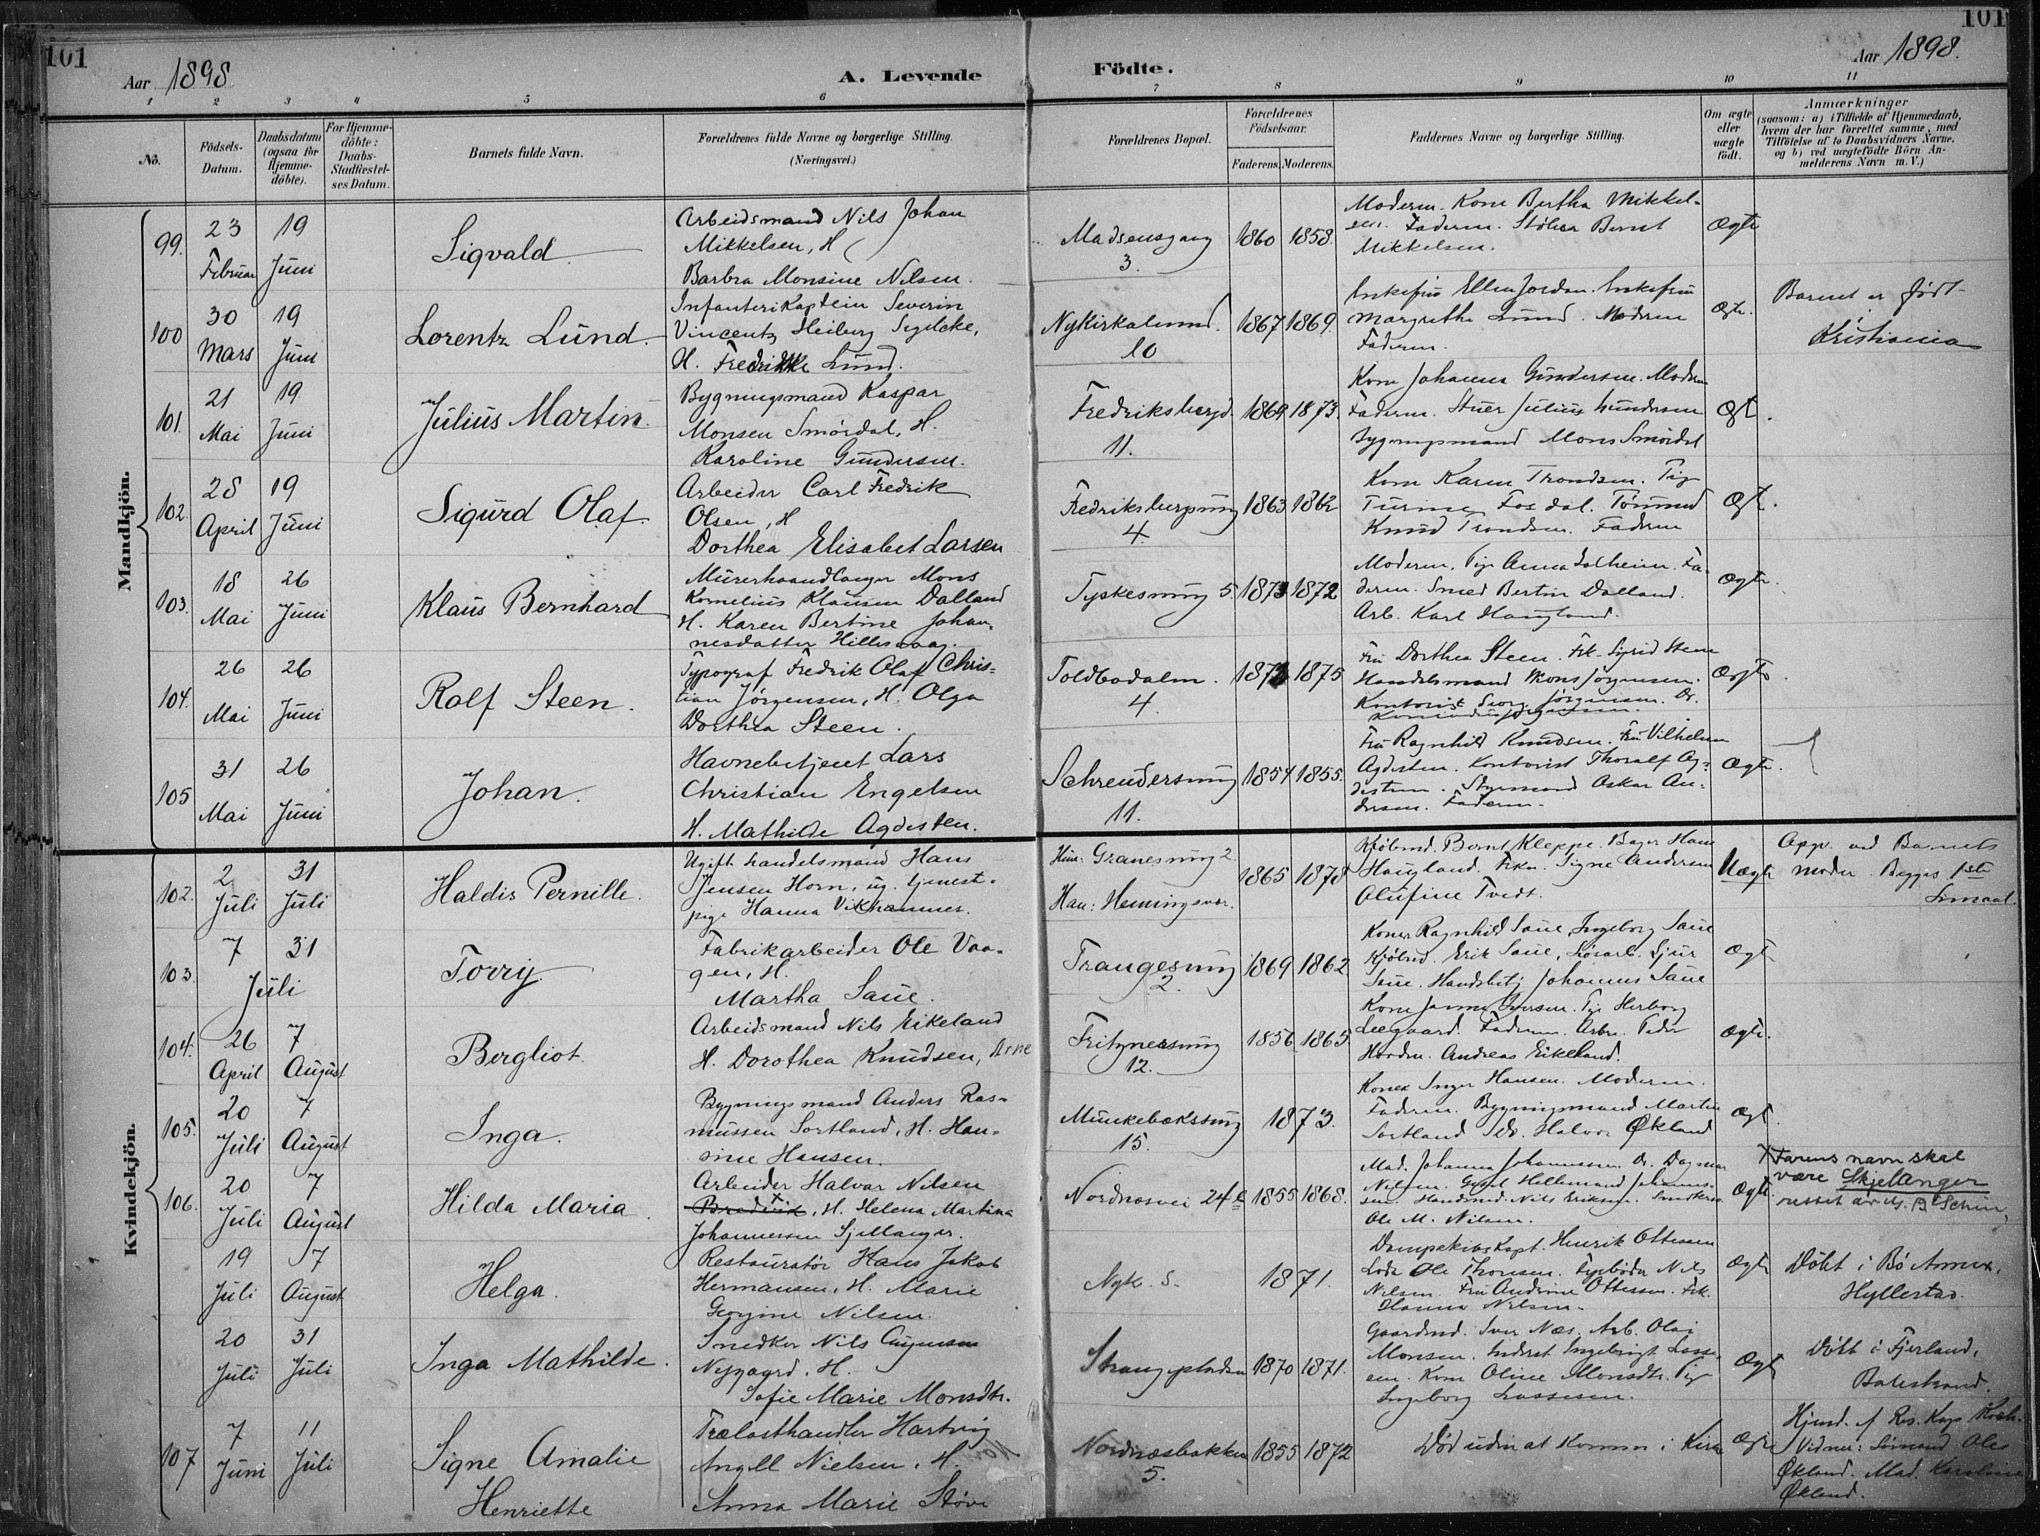 101
Aar 1898
A. Levende Födte.
Aar 1898.
101
1 2 3 4 5 6 7 8 9 10 11
No.
Födsels-Datum.
Daabsdatum (ogsaa for Hjemmedöbte).
For Hjemmedöbte: Daabs-Stadfæstelses Datum.
Barnets fulde Navn.
Forældrenes fulde Navne og borgerlige Stilling.
(Næringsvei.)
Forældrenes Bopæl.
Forældrenes Födselsaar.
Faderens. Moderens.
Faddernes Navne og borgerlige Stilling.
Om ægte eller uægte födt.
Anmærkninger
(saasom: a) i Tilfælde af Hjemmedaab, hvem der har forrettet samme, med Tilföielse af to Daabsvidners Navne, og b) ved uægtefödte Börn Anmelderens Navn m. V.)
Mandkjön.
99. 23 Februar 19 Juni
Sigvald
Arbeidsmand Nils Johan
Mikkelsen, H
Barbra Monsine Nilsen.
Madsensgang 3.
1860 1858.
Moderen. Kone Bertha Mikkel-
sen. Faderen. Støber Bernt
Mikkelsen.
Ægte
100 30 Mars 19 Juni
Lorentz Lund.
Infanterikaptein Severin
Vincentz Heiberg
H. Fredrikke Lund.
Nykirkealmnd. 10
1867 1869.
Enkefru Ellen Jordan. Enkefru
Margrethe Lund. Moderen
Faderen.
Ægte.
Barnet er født
Kristiania
101. 21 Mai 19 Juni
Julius Martin.
Bygningsmand Kaspar
Monsen Smørdal, H.
Karoline Gundersen.
Fredriksbergd. 11.
1869 1873.
Kone Johanna Gundersen. Moderen
Faderen. Stuer Julius Gundersen
Bygningsmand Mons Smørdal
Ægt.
102. 28 April 19 Juni
Sigurd Olaf.
Arbeider Carl Fredrik
Olsen, H
Dorthea Elisabet Larsen
4.
1863 1862
Kone Karen Trondsen. Pig
Knud Trondsen. Faderen
Ægt.
103. 18 Mai 26 Juni
Klaus Bernhard
Murerhaandlanger Mons
Kornelius Klausen Dalland
H. Karen Bertine Johan-
nesdatter Hillesvaag.
Tyskesmug 5.
1873 1872
Moderen, Pige Anna Solheim. Fa-
deren. Smed Bertin Dalland.
Arb. Karl Haugland.
Ægte.
104. 26 Mai 26 Juni
Rolf Steen.
Typograf Fredrik Olaf Chris-
tian Jørgensen, H. Olga
Dorthea Steen.
Toldbodalm. 4.
1872 1875
Fru Dorthea Steen. Frk. Sigrid Steen
Handelsmand Mons Jørgensen.
Kontorist Georg Jørgensen. Dr.
Ægte
105 31 Mai 26 Juni
Johan.
Havnebetjent Lars
Christian Engelsen
H. Mathilde Agdesten.
Schreudersmug 11.
1854 1855.
Fru Ragnhild Knudsen. Fru Vilhelm
Agdesten. Kontorist Thoralf Ag-
desten. Styrmand Oskar An-
dersen. Faderen.
Ægte.
Kvindekjön.
102. 2 Juli 31 Juli
Haldis Pernille.
Ugift handelsmand Hans
Jensen Horn, ug. tjenest-
pige Hanna Vikhammer.
Hun: Granesmug 2.
Han: Henningsvær.
1865 1878
Bernt Kleppe. Bager Hans
Haugland. Frkn. Signe Andersen
Olufine Tvedt.
Uægte
Opg. ved Barnets
moder. Begges 1ste
Leiermaal.
103. 7 31 Juli
Torry
Fabrikarbeider Ole Vaa-
gen, H.
Martha Saue.
Trangesmug 2.
1869 1862
Koner Ragnhild Saue, Ingeborg Saue
Erik Saue, Løsarb. Sjur
Saue. Handsbetj. Johannes Saue
Ægt
104. 26 April 7 August
Bergliot.
Arbeidsmand Nils Eikeland
H. Dorothea Knudsen, Arne
Fritznersmug 12.
1856 1865
Kone Janna Iversen. Pige Herborg
Leegaard. Faderen. Arbm. Peder
Andreas Eikeland.
Ægte.
105. 20 Juli 7 August
Inga.
Bygningsmand Anders Ras-
mussen Sortland, H. Han-
sine Hansen.
Munkebæksmug 15.
1873.
Koner Inger Hansen. Moderen.
Faderen. Bygningsmand Martin
Sortland. Halvor Økland
Ægt.
106. 20 Juli 7 August
Hilda Maria.
Arbeider Halvar Nilsen
Bredvik, H. Helena Martina
Johannessen Sjellanger.
Nordnæsvei 24 b
1855 1868.
Mad. Johanna Johannessen. Dr. Dagmar
Nilsen.
Ole M. Nilsen.
Ægte.
X Farens navn skal
være Skjellanger
19 Juli 7 August
Helga.
Restauratør Hans Jakob
Hermansen, H. Marie
Georgine Nilsen.
Nyk. 5.
1871.
Dampskibskapt. Henrik Ottesen
Lods Ole Thorsen. Nils
Nilsen. Fru Andrine Ottesen. Frk.
Hanna Nilsen.
Ægte
Døbt i Bø Annex,
Hyllestad.
20 Juli 31 Juli
Inga Mathilde.
Snedker Nils
Nygaard, H.
Sofie Marie Monsdtr.
1870 1871.
Gaardmd. Iver Næs. Arb. Olai
Monsen. Inderst Ingebrigt Lasse-
sen. Kone Oline Monsdtr. Pige
Ingeborg Lassesen.
Ægt
Døbt i Fjærland,
Balestrand.
107 7 Juni 11 Juli
Signe Amalie
Henriette
Trælasthandler Hartvig
Angell Nielsen, H.
Anna Marie Støve
Nordnæsbakken 5.
1855 1872
Død uden at komme i Kirke
Ægte
Hjmd. af Res. Kap. Koch.
Vidner: Sømand Ole
Økland. Mad. Karoline
Økland.